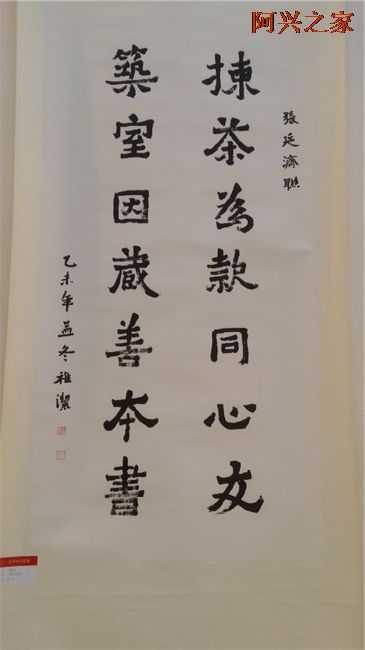 阿兴之家
張廷濟聯
揀茶為款同心友
築室因藏善本書
乙未年孟冬祖潔